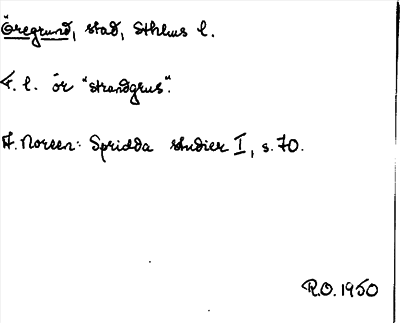 Öregrund, stad, Sthlms l.
F. l. ör "strandgrus".
A. Noreen: Spridda studier I, s. 70.
R.O. 1950